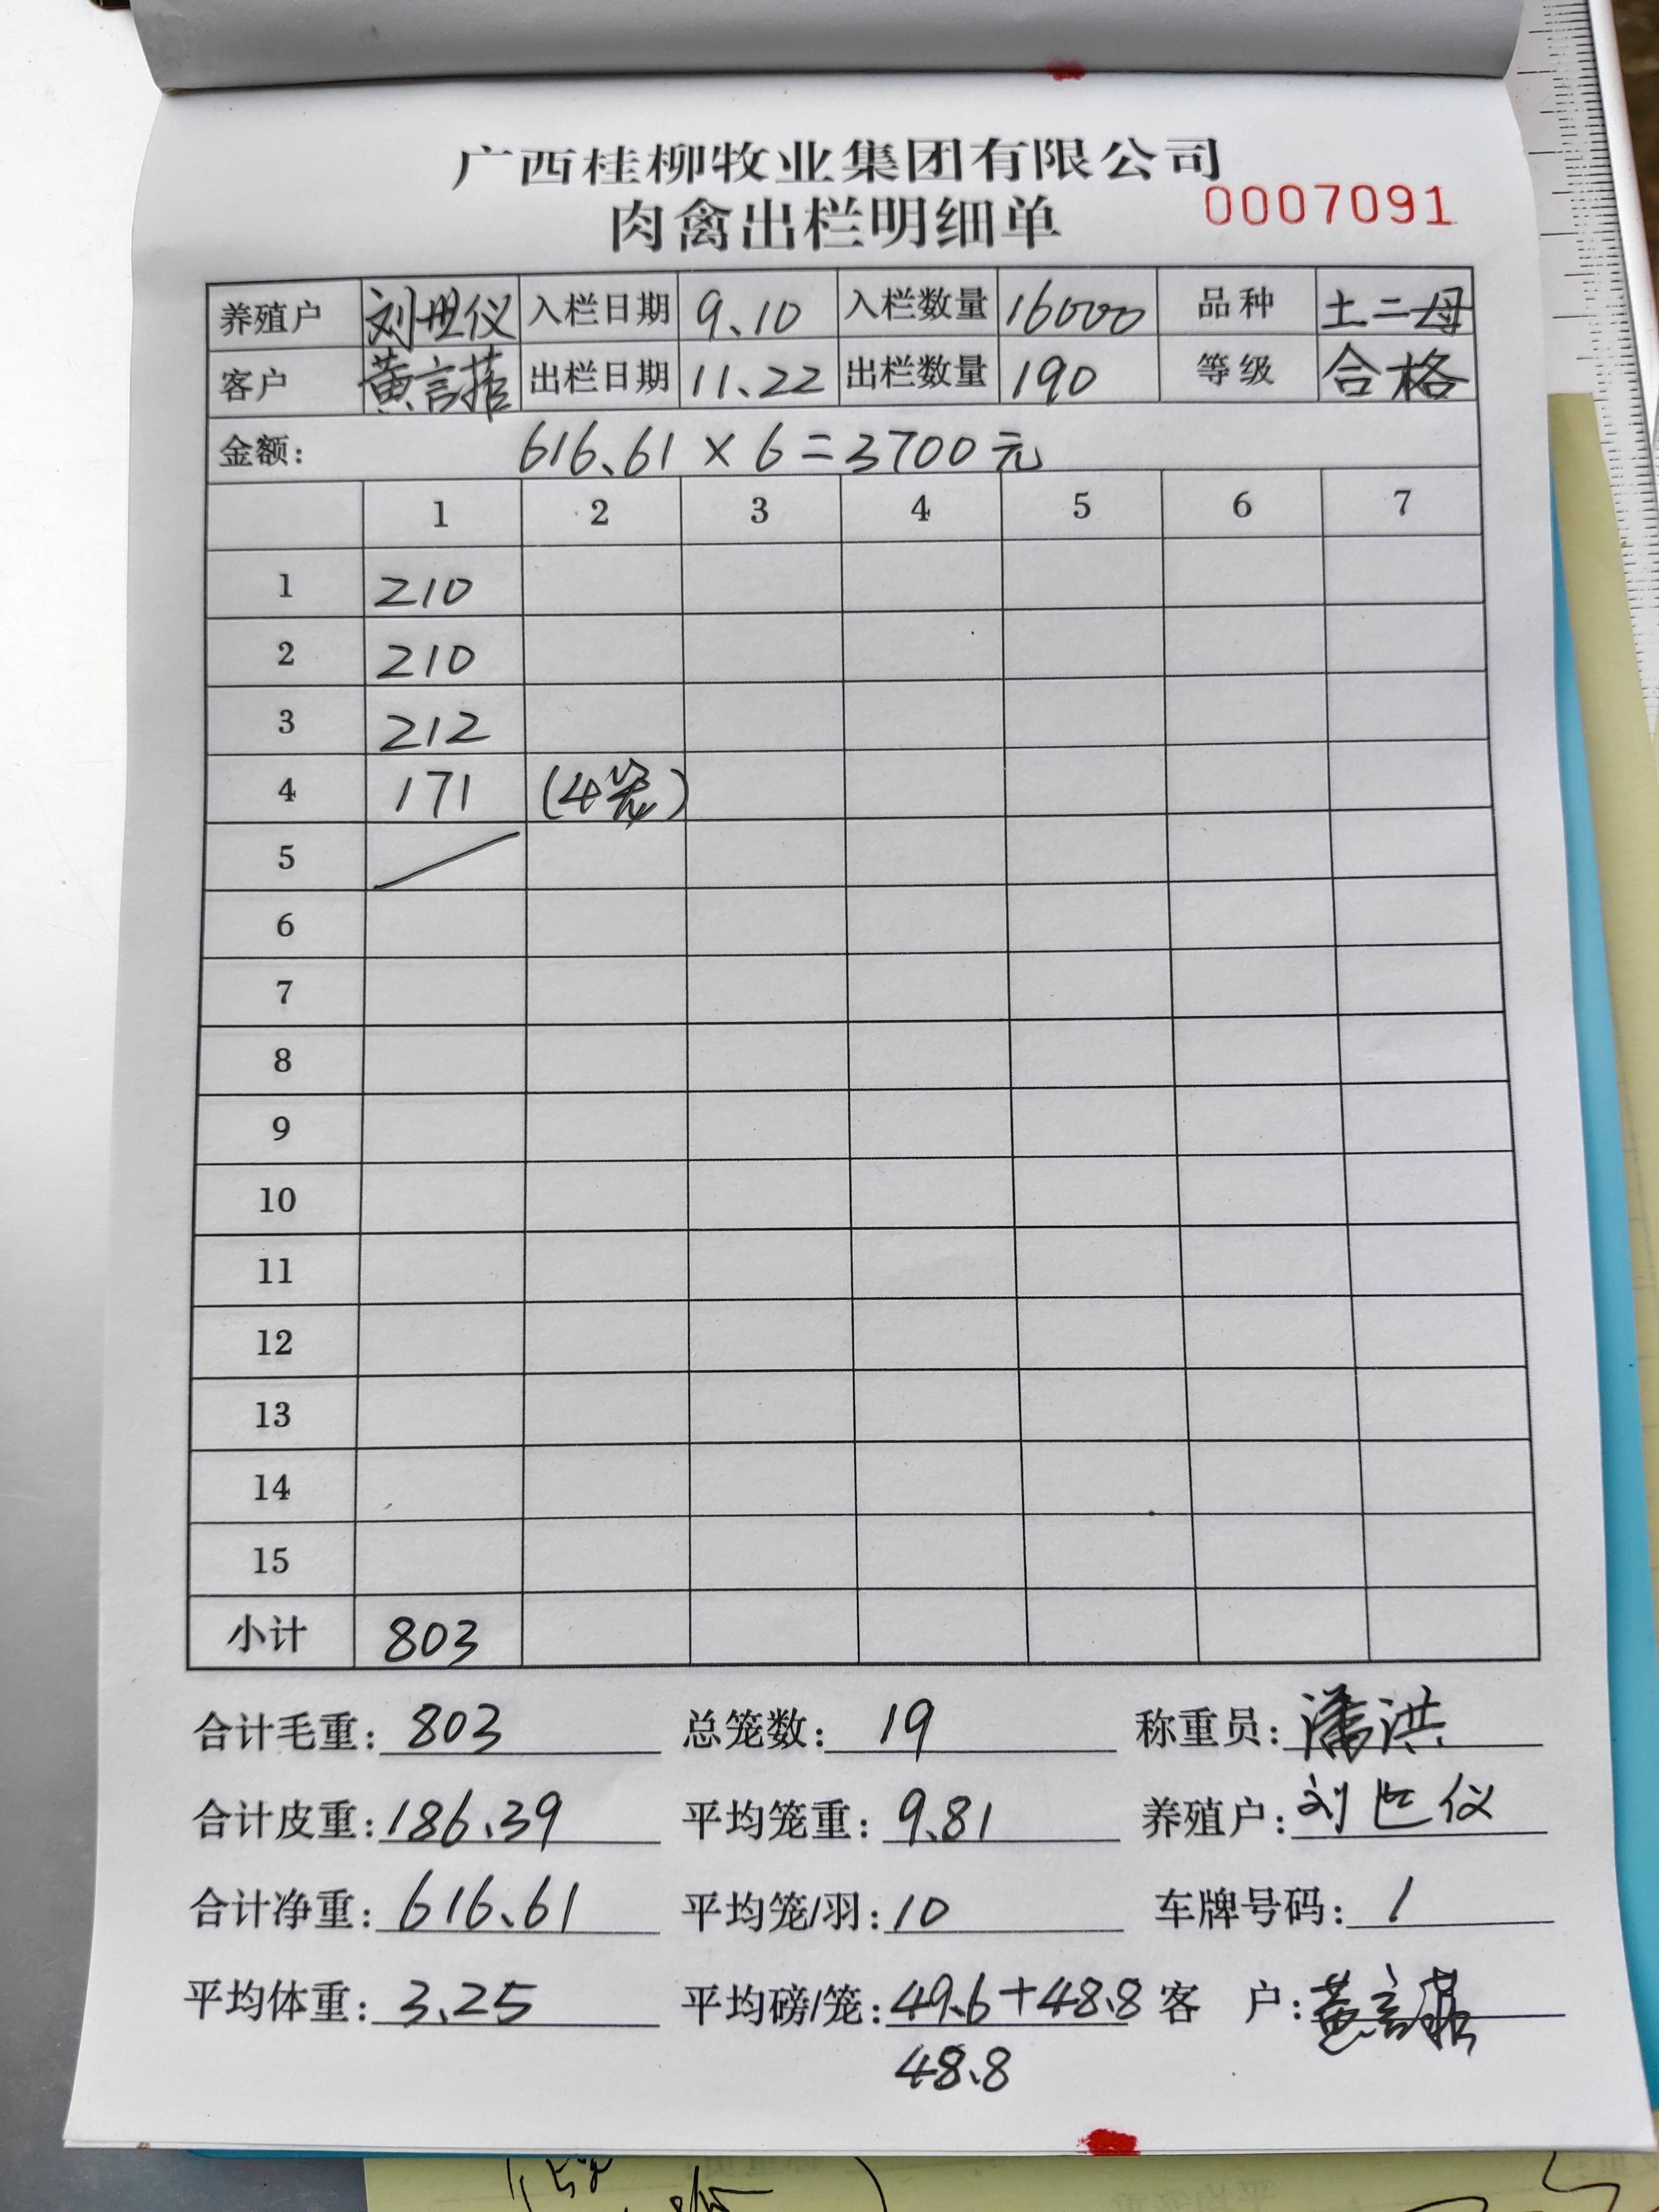 广西桂柳牧业集团有限公司
肉禽出栏明细单 0007091
养殖户 刘世仪 入栏日期 9.10 入栏数量 16000 品种 土二母
客户 黄言 出栏日期 11.22 出栏数量 190 等级 合格
金额: 616.61×6=3700元
1 2 3 4 5 6 7
1 210
2 210
3 212
4 171 (4笼)
5
6
7
8
9
10
11
12
13
14
15
小计 803
合计毛重: 803 总笼数: 19 称重员: 潘洪
合计皮重: 186.39 平均笼重: 9.81 养殖户: 刘世仪
合计净重: 616.61 平均笼/羽: 10 车牌号码: 1
平均体重: 3.25 平均磅/笼: 49.6+48.8 客 户: 黄言
48.8